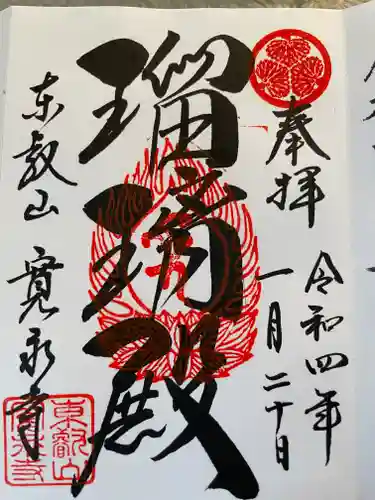 奉拝
令和四年
一月二十日
瑠璃殿
東叡山
寛永寺
東叡山
寛永寺